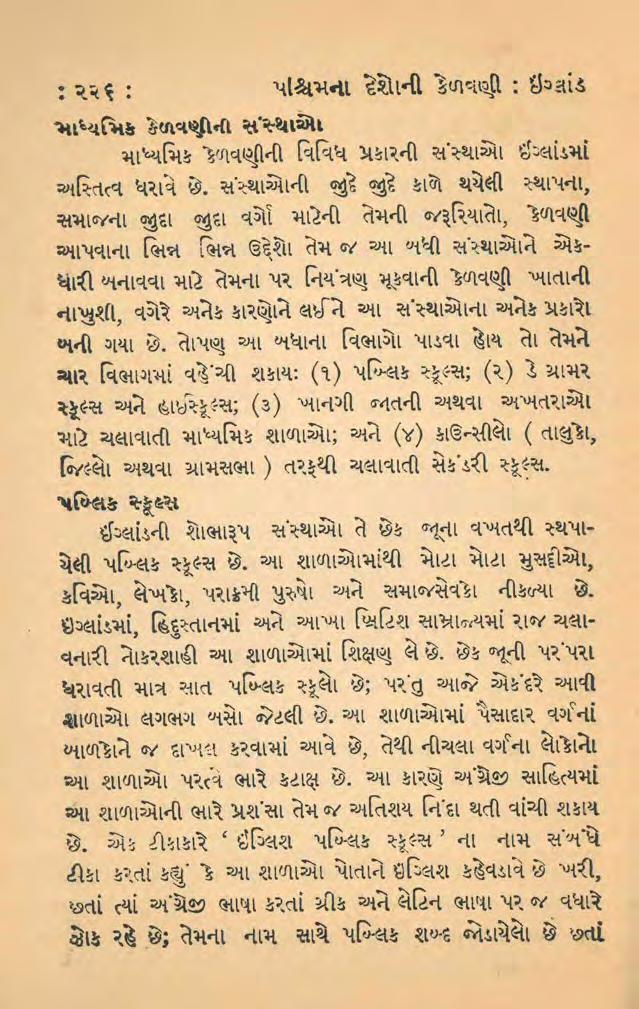 : ૨૨૬ : પશ્ચિમના દેશોની કેળવણી : ઇંગ્લાંડ
માધ્યમિક કેળવણીની સંસ્થાઓ
માધ્યમિક કેળવણીની વિવિધ પ્રકારની સંસ્થાઓ ઇંગ્લાંડમાં
અસ્તિત્વ ધરાવે છે. સંસ્થાઓની જુદે જુદે કાળે થયેલી સ્થાપના,
સમાજના જુદા જુદા વર્ગો માટેની તેમની જરૂરિયાતો, કેળવણી
આપવાના ભિન્ન ભિન્ન ઉદ્દેશો તેમ જ આ બધી સંસ્થાઓને એક-
ધારી બનાવવા માટે તેમના પર નિયંત્રણ મૂકવાની કેળવણી ખાતાની
નાખુશી, વગેરે અનેક કારણોને લઈને આ સંસ્થાઓના અનેક પ્રકારો
બની ગયા છે. તોપણ આ બધાના વિભાગો પાડવા હોય તો તેમને
ચાર વિભાગમાં વહેંચી શકાયઃ (૧) પબ્લિક સ્કૂલ્સ; (૨) ડે ગ્રામર
સ્કૂલ્સ અને હાઇસ્કૂલ્સ; (૩) ખાનગી જાતની અથવા અખતરાઓ
માટે ચલાવાતી માધ્યમિક શાળાઓ; અને (૪) કાઉન્સીલો ( તાલુકો,
જિલ્લો અથવા ગ્રામસભા ) તરફથી ચલાવાતી સેકંડરી સ્કૂલ્સ.
પબ્લિક સ્કૂલ્સ
ઇંગ્લાંડની શોભારૂપ સંસ્થાઓ તે છેક જૂના વખતથી સ્થપા-
યેલી પબ્લિક સ્કૂલ્સ છે. આ શાળાઓમાંથી મોટા મોટા મુસદ્દીઓ,
કવિઓ, લેખકો, પરાક્રમી પુરુષો અને સમાજસેવકો નીકળ્યા છે.
ઇંગ્લાંડમાં, હિંદુસ્તાનમાં અને આખા બ્રિટિશ સામ્રાજ્યમાં રાજ ચલા-
વનારી નોકરશાહી આ શાળાઓમાં શિક્ષણ લે છે. છેક જૂની પરંપરા
ધરાવતી માત્ર સાત પબ્લિક સ્કૂલો છે; પરંતુ આજે એકંદરે આવી
શાળાઓ લગભગ બસો જેટલી છે. આ શાળાઓમાં પૈસાદાર વર્ગનાં
બાળકોને જ દાખલ કરવામાં આવે છે, તેથી નીચલા વર્ગના લોકોનો
આ શાળાઓ પરત્વે ભારે કટાક્ષ છે. આ કારણે અંગ્રેજી સાહિત્યમાં
આ શાળાઓની ભારે પ્રશંસા તેમ જ અતિશય નિંદા થતી વાંચી શકાય
છે. એક ટીકાકારે ‘ ઇંગ્લિશ પબ્લિક સ્કૂલ્સ ’ ના નામ સંબંધે
ટીકા કરતાં કહ્યું કે આ શાળાઓ પોતાને ઇંગ્લિશ કહેવડાવે છે ખરી,
છતાં ત્યાં અંગ્રેજી ભાષા કરતાં ગ્રીક અને લેટિન ભાષા પર જ વધારે
ઝોક રહે છે; તેમના નામ સાથે પબ્લિક શબ્દ જોડાયેલો છે છતાં